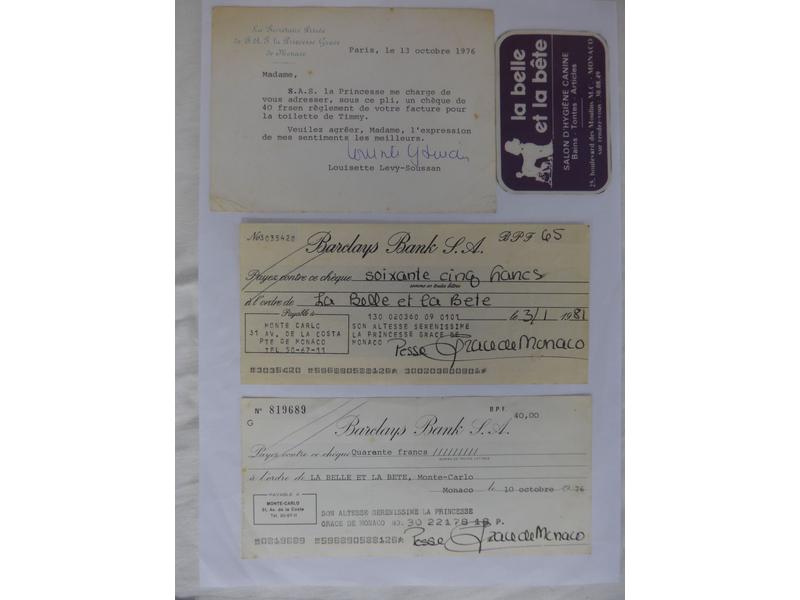 La Secrétaire Privée
de S.A.S. la Princesse Grace
de Monaco
Paris, le 13 octobre 1976
Madame,
S.A.S. la Princesse me charge de
vous adresser, sous ce pli, un chèque de
40 frsen règlement de votre facture pour
la toilette de Timmy.
Veuilez agréer, Madame, l'expression
de mes sentiments les meilleurs.
Louisette Levy-Soussan
la belle
et la bête
SALON D'HYGIÈNE CANINE
Bains - Tontes - Articles
25, boulevard des Moulins M.C. - MONACO
sur rendez-vous : 30.88.49
No3035420
Barclays Bank S.A.
B.P.F 65
Payez contre ce chèque soixante cinq francs
somme en toutes lettres
à l'ordre de La Belle et la Bete
Payable à
130 020360 09 0101
le 3/1 1981
MONTE CARLO
31 AV. DE LA COSTA
PTE DE MONACO
TEL 50-67-11
SON ALTESSE SERENISSIME
LA PRINCESSE GRACE DE
MONACO
Pesse Grace de Monaco
N° 819689
B.P.F. 40,00
G
Barclays Bank S.A.
Payez contre ce chèque Quarante francs /////////
à l'ordre de LA BELLE ET LA BETE, Monte-Carlo
Monaco le 10 octobre 1976
PAYABLE A
MONTE-CARLO
31, Av. de la Costa
SON ALTESSE SERENISSIME LA PRINCESSE
GRACE DE MONACO NO. 30 22178 18 P.
Pesse Grace de Monaco